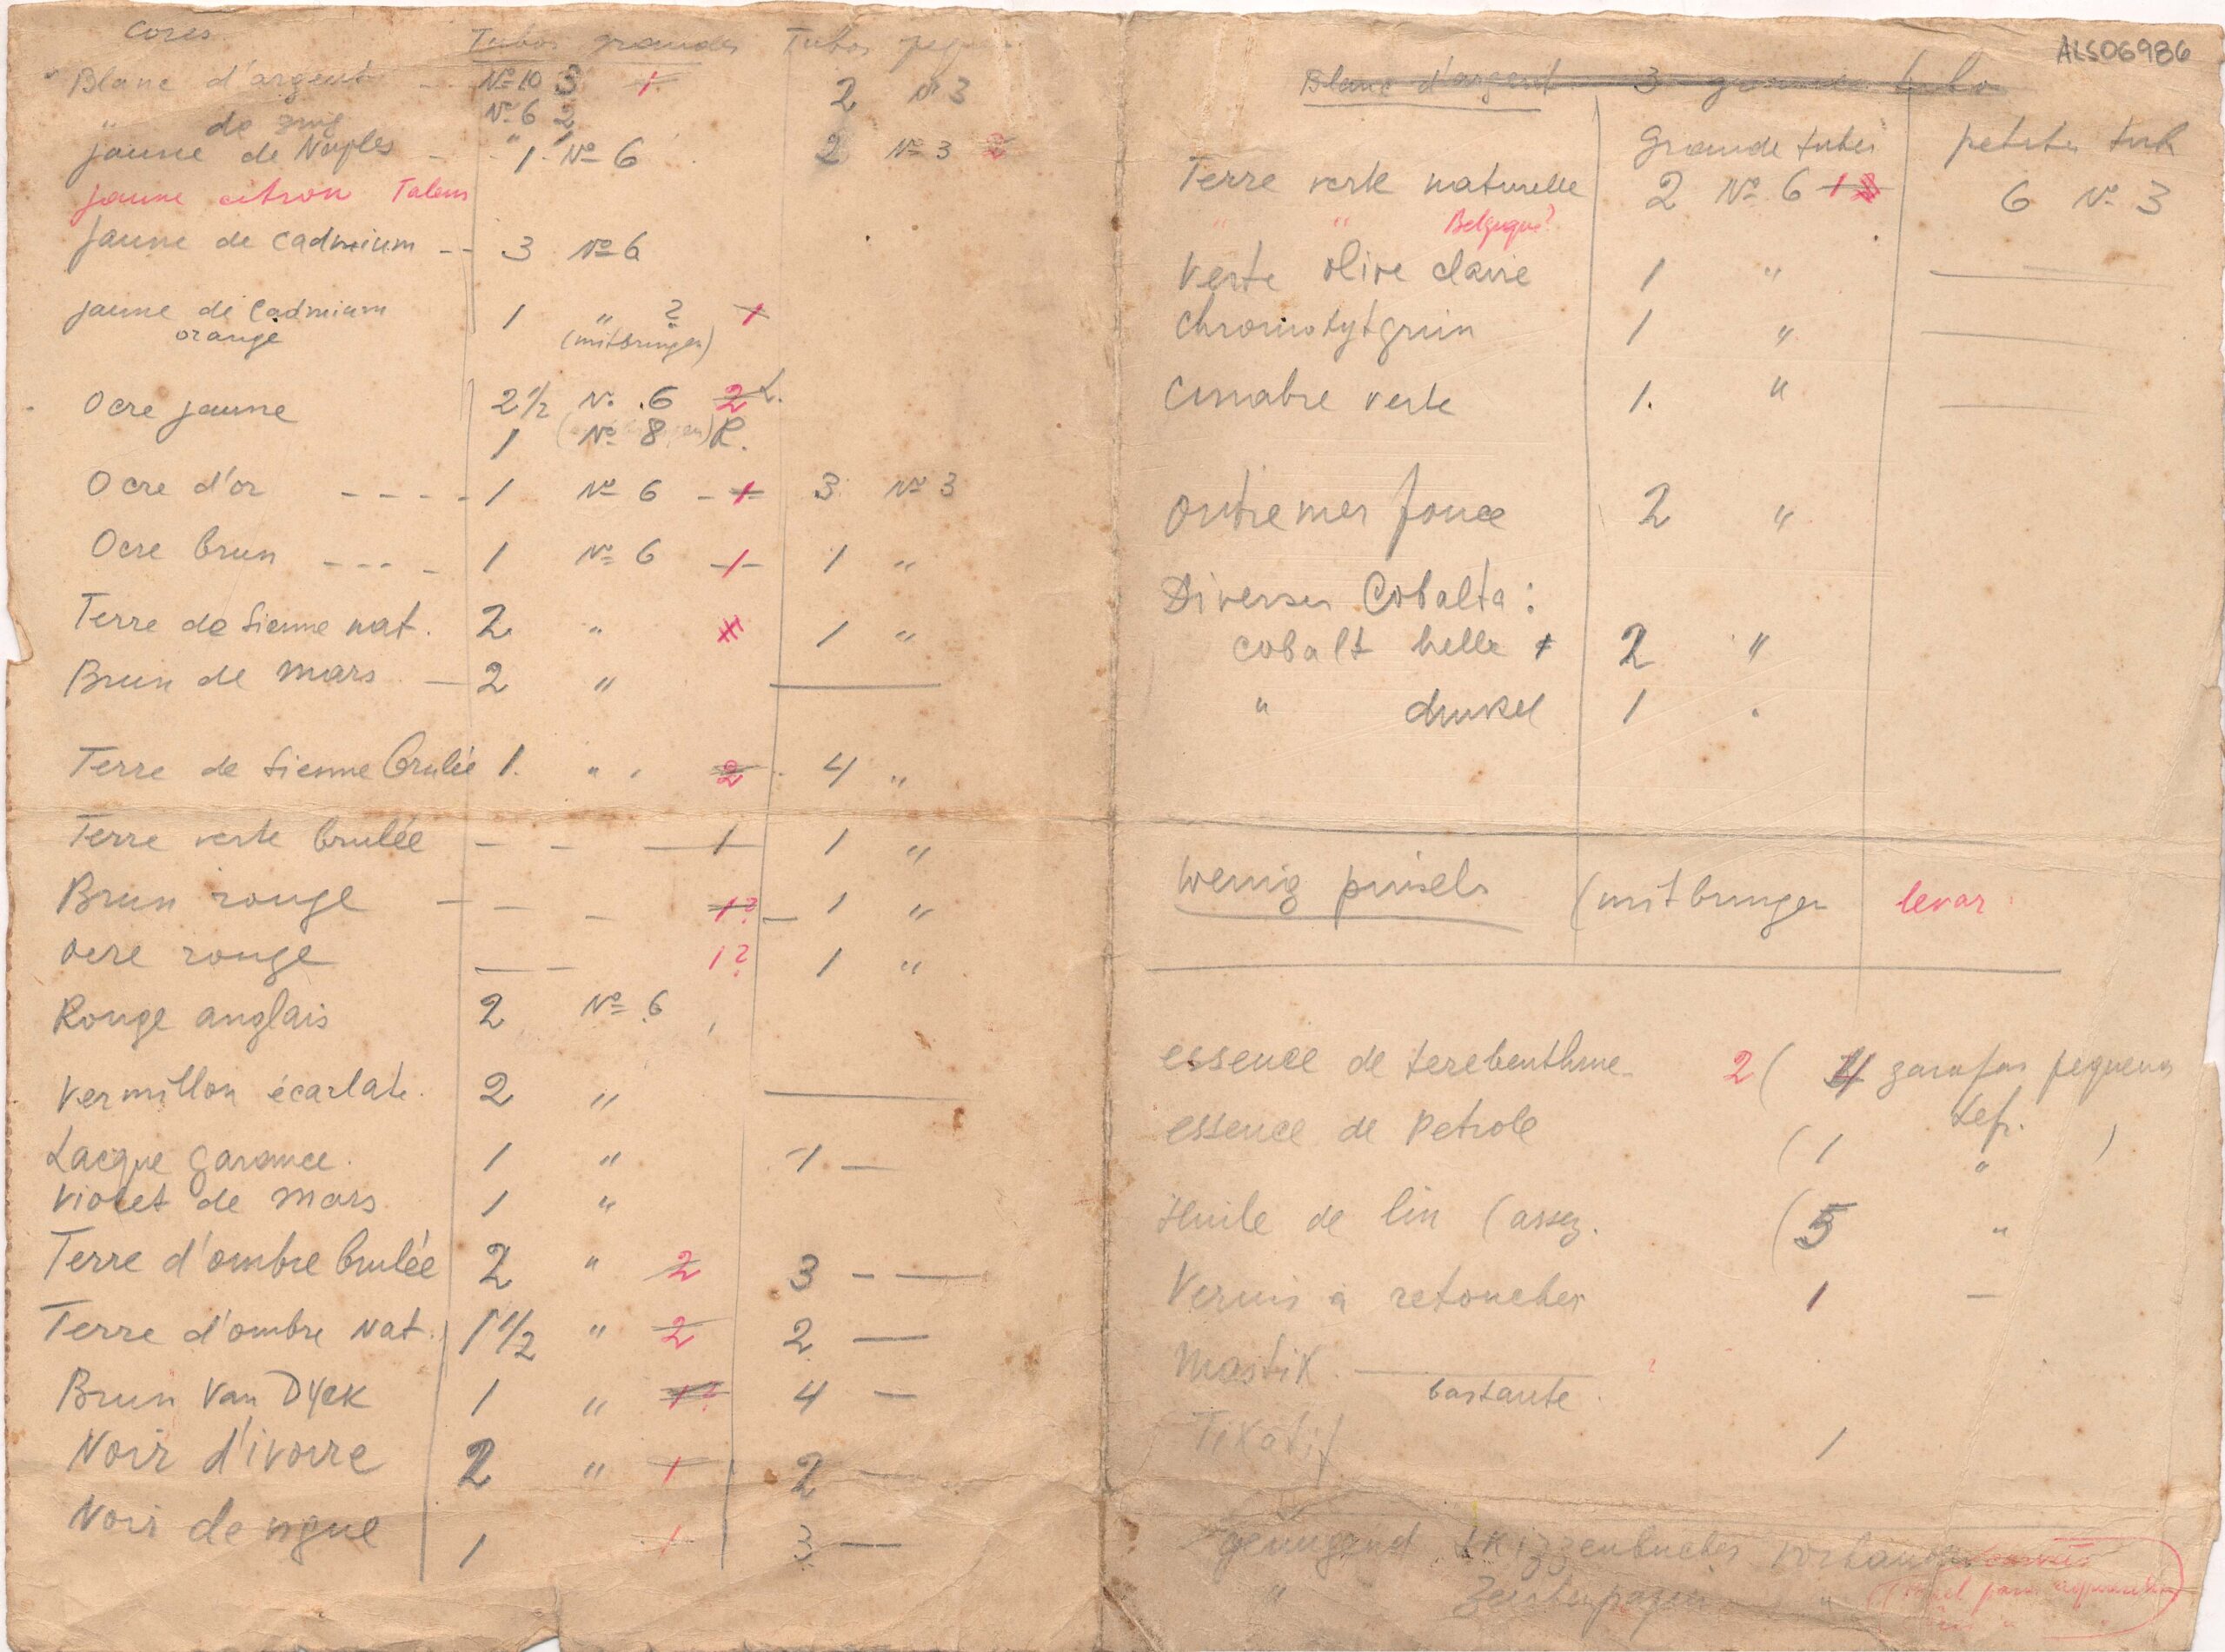 Cores Tubos grandes Tubos peq
Blanc d'argent Nº 10 3 1 2 Nº 3
" de zinc Nº 6 2
jaune de Naples - - 1 Nº 6 2 Nº 3 2
jaune citron Talens
jaune de cadmium -- 3 Nº 6
jaune de Cadmium 1 " ? 1
orange (mitbringen)
Ocre jaune 2 1/2 Nº 6 2 L.
1 (Nº 8 ) R.
Ocre d'or - - - - 1 Nº 6 - 1 3 Nº 3
Ocre brun - - - - 1 Nº 6 - 1 - 1 "
Terre de Sienne nat. 2 " 1 "
Brun de Mars - 2 " —
Terre de Sienne brulée 1. " 2 4 "
Terre verte brulée - - — 1 1 "
Brun rouge - - - 1? - 1 "
Ocre rouge — - 1? 1 "
Rouge anglais 2 Nº 6
Vermillon écarlate. 2 " —
Lacque garance. 1 " 1 —
Violet de Mars 1 "
Terre d'ombre brulée 2 " 2 3 - —
Terre d'ombre nat. 1 1/2 " 2 2 —
Brun Van Dyck 1 " 1? 4 —
Noir d'ivoire 2 " 1 2 —
Noir de vigne 1 1 3 —
ALS06986
Blanc d'argent 3 grande tubo
Grande tubes petites tub
Terre verte naturelle 2 Nº 6 1 6 Nº 3
" " Belgique?
Verte olive claire 1 " —
Chromoxytgrün 1 " —
Cinabre verte 1. " —
Outremer foncé 2 "
Diverses Cobalta:
Cobalt helle 2 "
" dunkel 1 "
Wenig pinsels (mitbringen levar
essence de terebenthine 2 ( 4 garafas pequenas
essence de Petrole ( 1 " )
Huile de lin (assez. ( 5 "
Vernis à retoucher 1 —
Mastix. —
bastante.
Fixatif 1
genugend Skizzenbucher vorhanden
" Zeichenpapier "